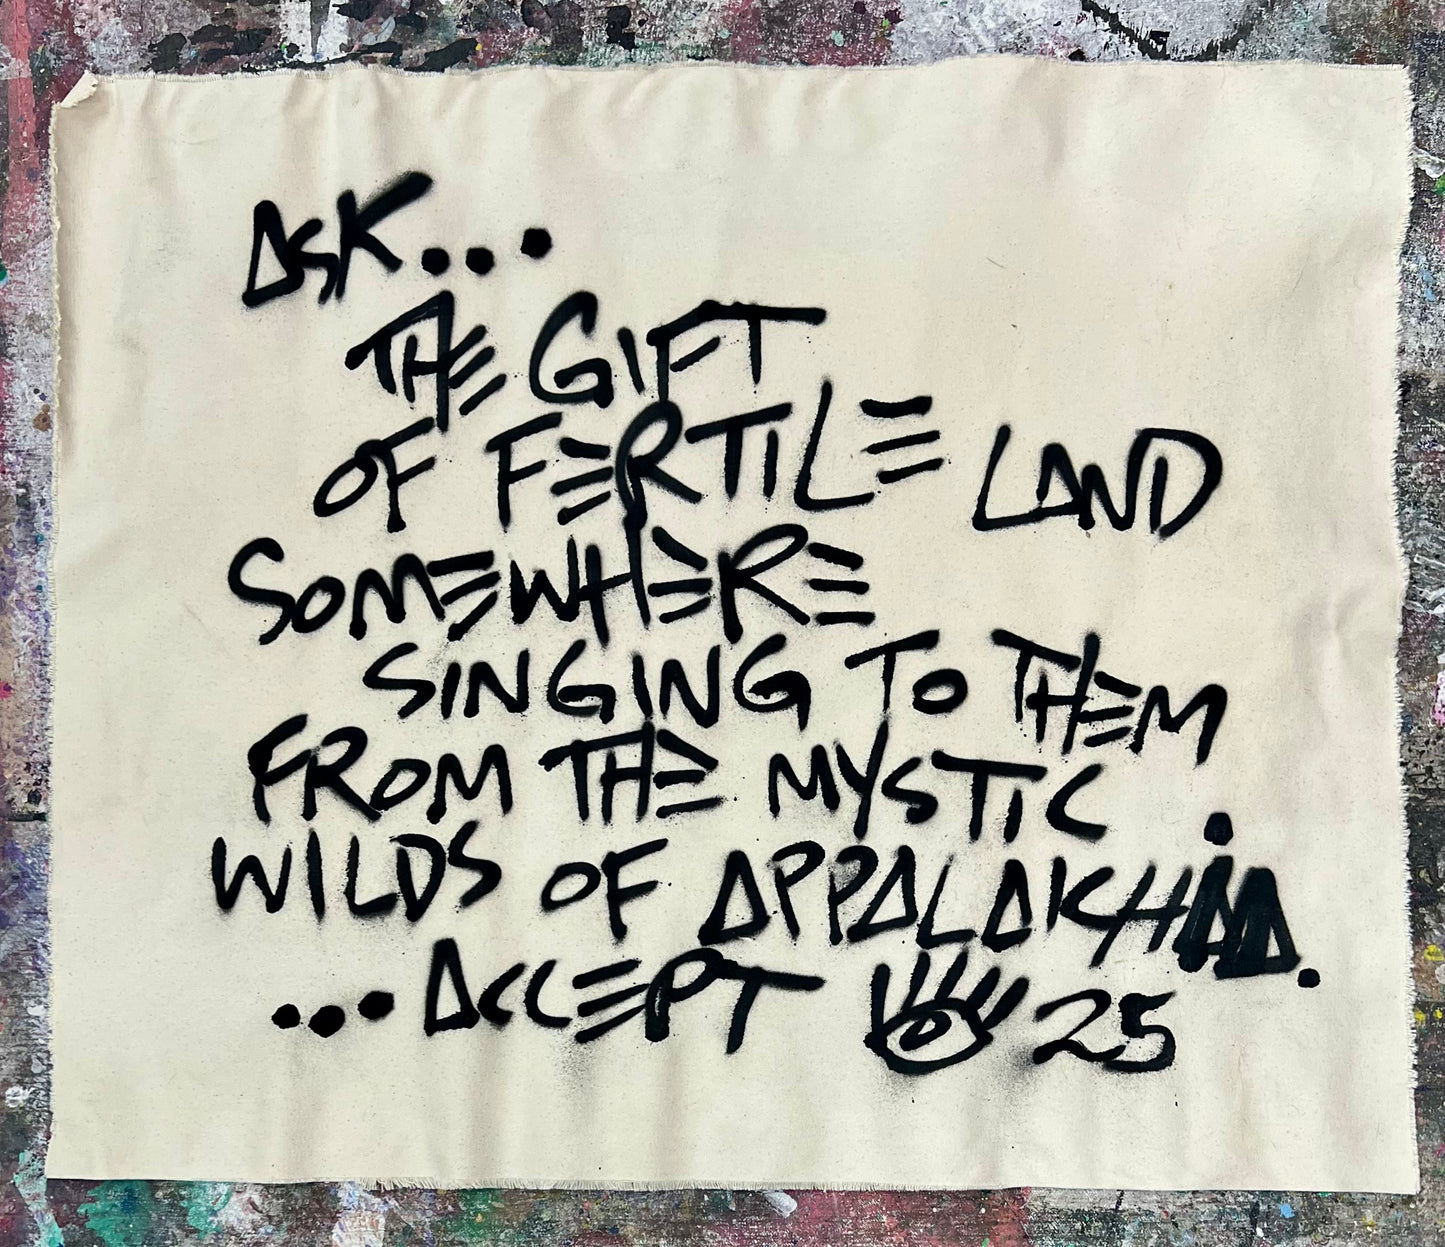 ASK...
THE GIFT
OF FERTILE LAND
SOMEWHERE
SINGING TO THEM
FROM THE MYSTIC
WILDS OF APPALAKHIA.
...ACCEPT 25